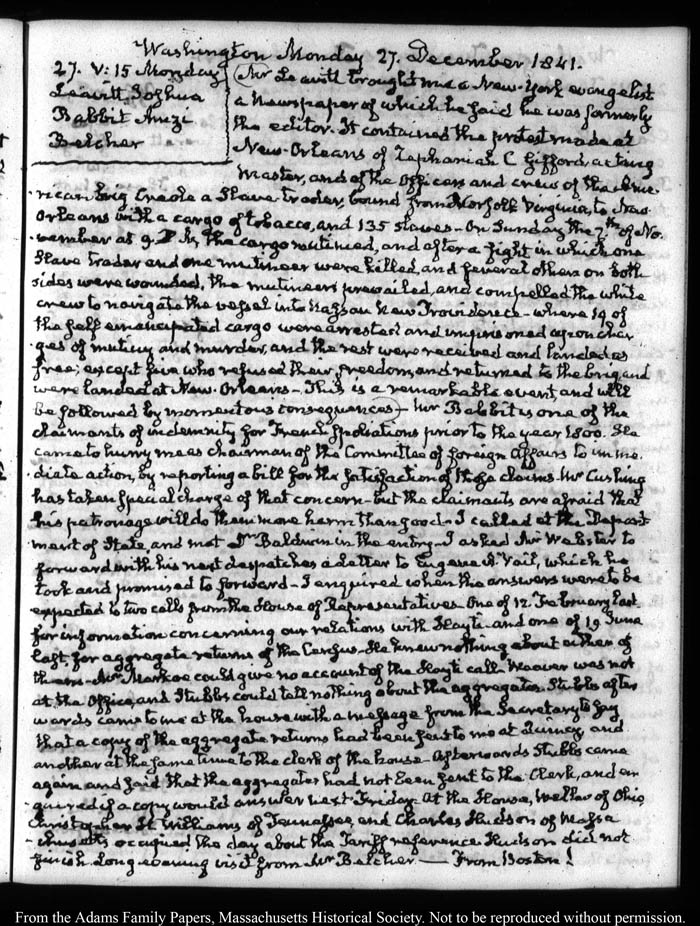 Washington Monday 27. December 1841.
27. V:15 Monday
Leavitt Joshua
Babbit Anzi
Belcher
Mr Leavitt brought me a New-York evangelist
a Newspaper of which he said he was formerly
the editor. It contained the protest made at
New-Orleans of Zephaniah C. Gifford, acting
Master, and of the Officers and crew of the Ame-
rican brig Creole a Slave trader, bound from Norfolk Virginia, to New-
Orleans with a cargo of tobacco, and 135 slaves- On Sunday the 7th of No-
vember at 9. P.M. the cargo mutinied, and after a fight in which one
Slave trader and one mutineer were killed, and several others on both
sides were wounded, the mutineers prevailed, and compelled the white
crew to navigate the vessel into Nassau New Providence- where 19 of
the self emancipated cargo were arrested and imprisoned upon char-
ges of mutiny and murder, and the rest were received and landed as
free; except five who refused their freedom, and returned to the brig, and
were landed at New-Orleans- This is a remarkable event, and will
be followed by momentous consequences- Mr Babbit is one of the
claimants of indemnity for French Spoliations prior to the year 1800. He
came to hurry me as Chairman of the Committee of foreign Affairs to imme-
diate action, by reporting a bill for the satisfaction of those claims. Mr Cushing
has taken special charge of that concern- but the claimants are afraid that
his patronage will do them more harm than good- I called at the Depart-
ment of State, and met Mr Baldwin in the entry- I asked Mr Webster to
forward with his next despatches a letter to Eugene A. Vail, which he
took and promised to forward- I enquired when the answers were to be
expected to two calls from the House of Representatives- One of 12. February last
for information concerning our relations with Hayti- and one of 19 June
last, for aggregate returns of the Census- He knew nothing about either of
them- Mr Markoe could give no account of the Hayti call- Weaver was not
at the Office, and Stubbs could tell nothing about the aggregates. Stubbs after-
wards came to me at the house with a message from the Secretary to say
that a copy of the aggregate returns had been sent to me at Quincy, and
another at the same time to the clerk of the house- Afterwards Stubbs came
again and said that the aggregates had not been sent to the Clerk, and en-
quired if a copy would answer next Friday. At the House, Weller of Ohio
Christopher H. Williams of Tennessee, and Charles Hudson of Massa-
chusetts occupied the day about the Tariff reference. Hudson did not
finish. Long evening visit from Mr Belcher — From Boston!
From the Adams Family Papers, Massachusetts Historical Society. Not to be reproduced without permission.